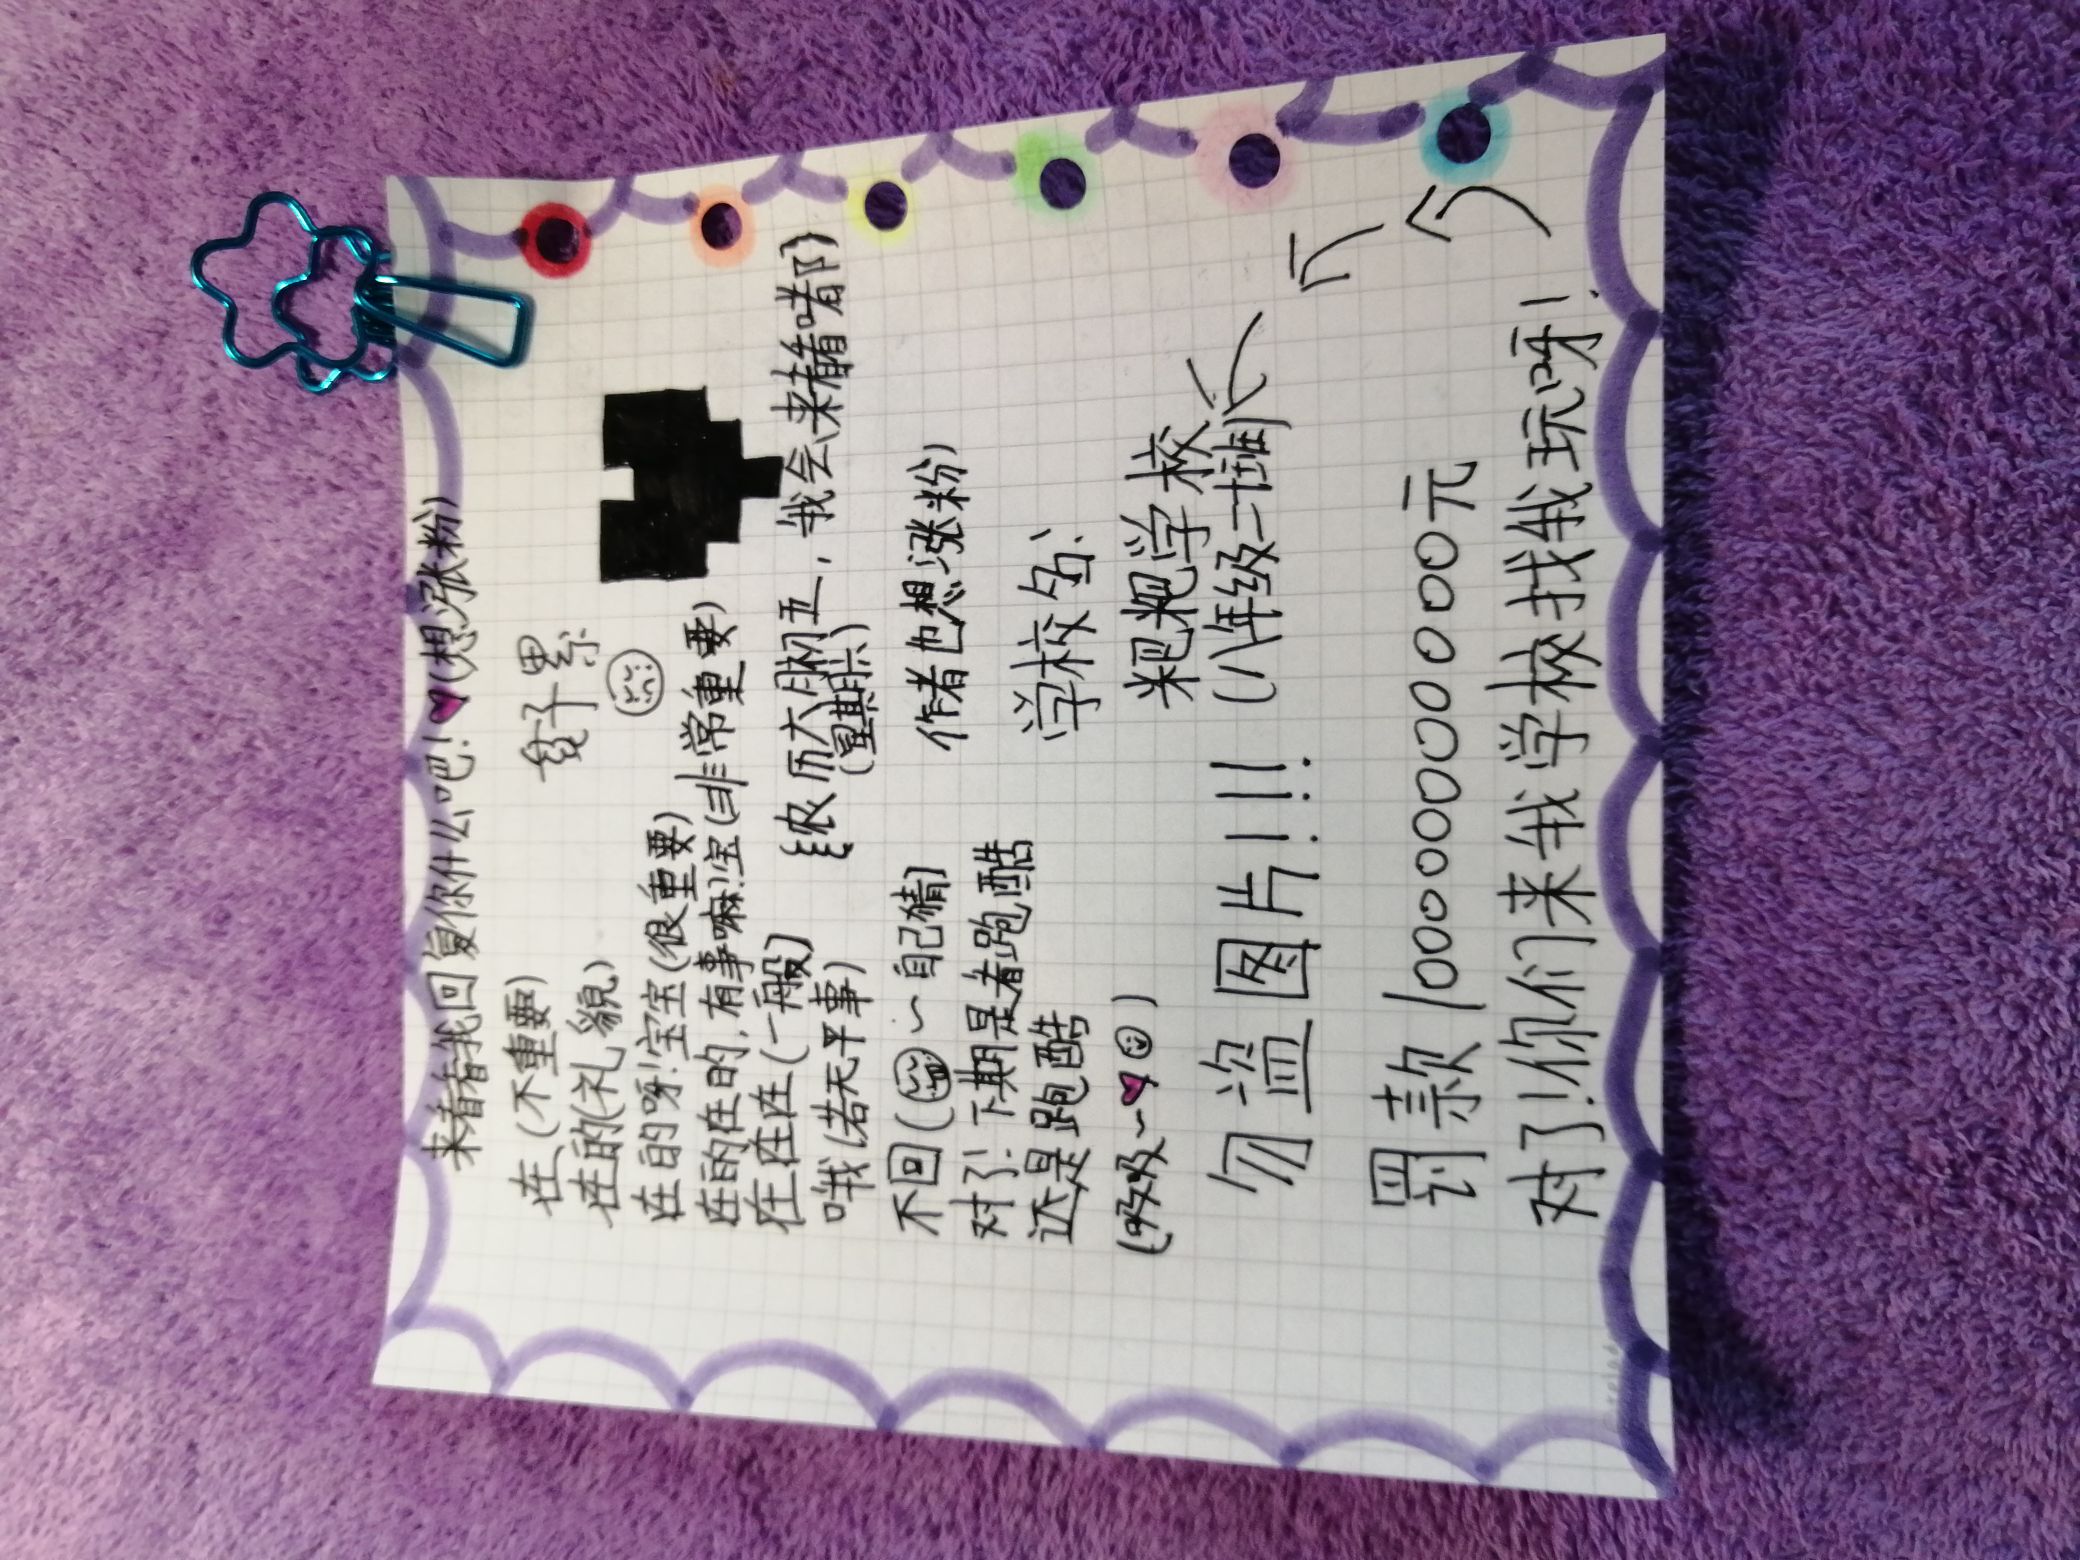 来看看我回复你什么吧!(想涨粉)
在(不重要)
在的(礼貌)
在的呀!宝宝(很重要)
在的在的,有事嘛!宝(非常重要)
在在在(一般)
哦(若无平事)
不回(~自己猜)
对了!下期是看跑酷
还是跑酷
(吸吸~)
好累
{农历六月初五,我会来看
(星期六)
作者也想涨粉)
学校名:
粑粑学校
(八年级二
勿盗图片!!!!
罚款100000000000元
对了!你们来我学校找我玩呀!